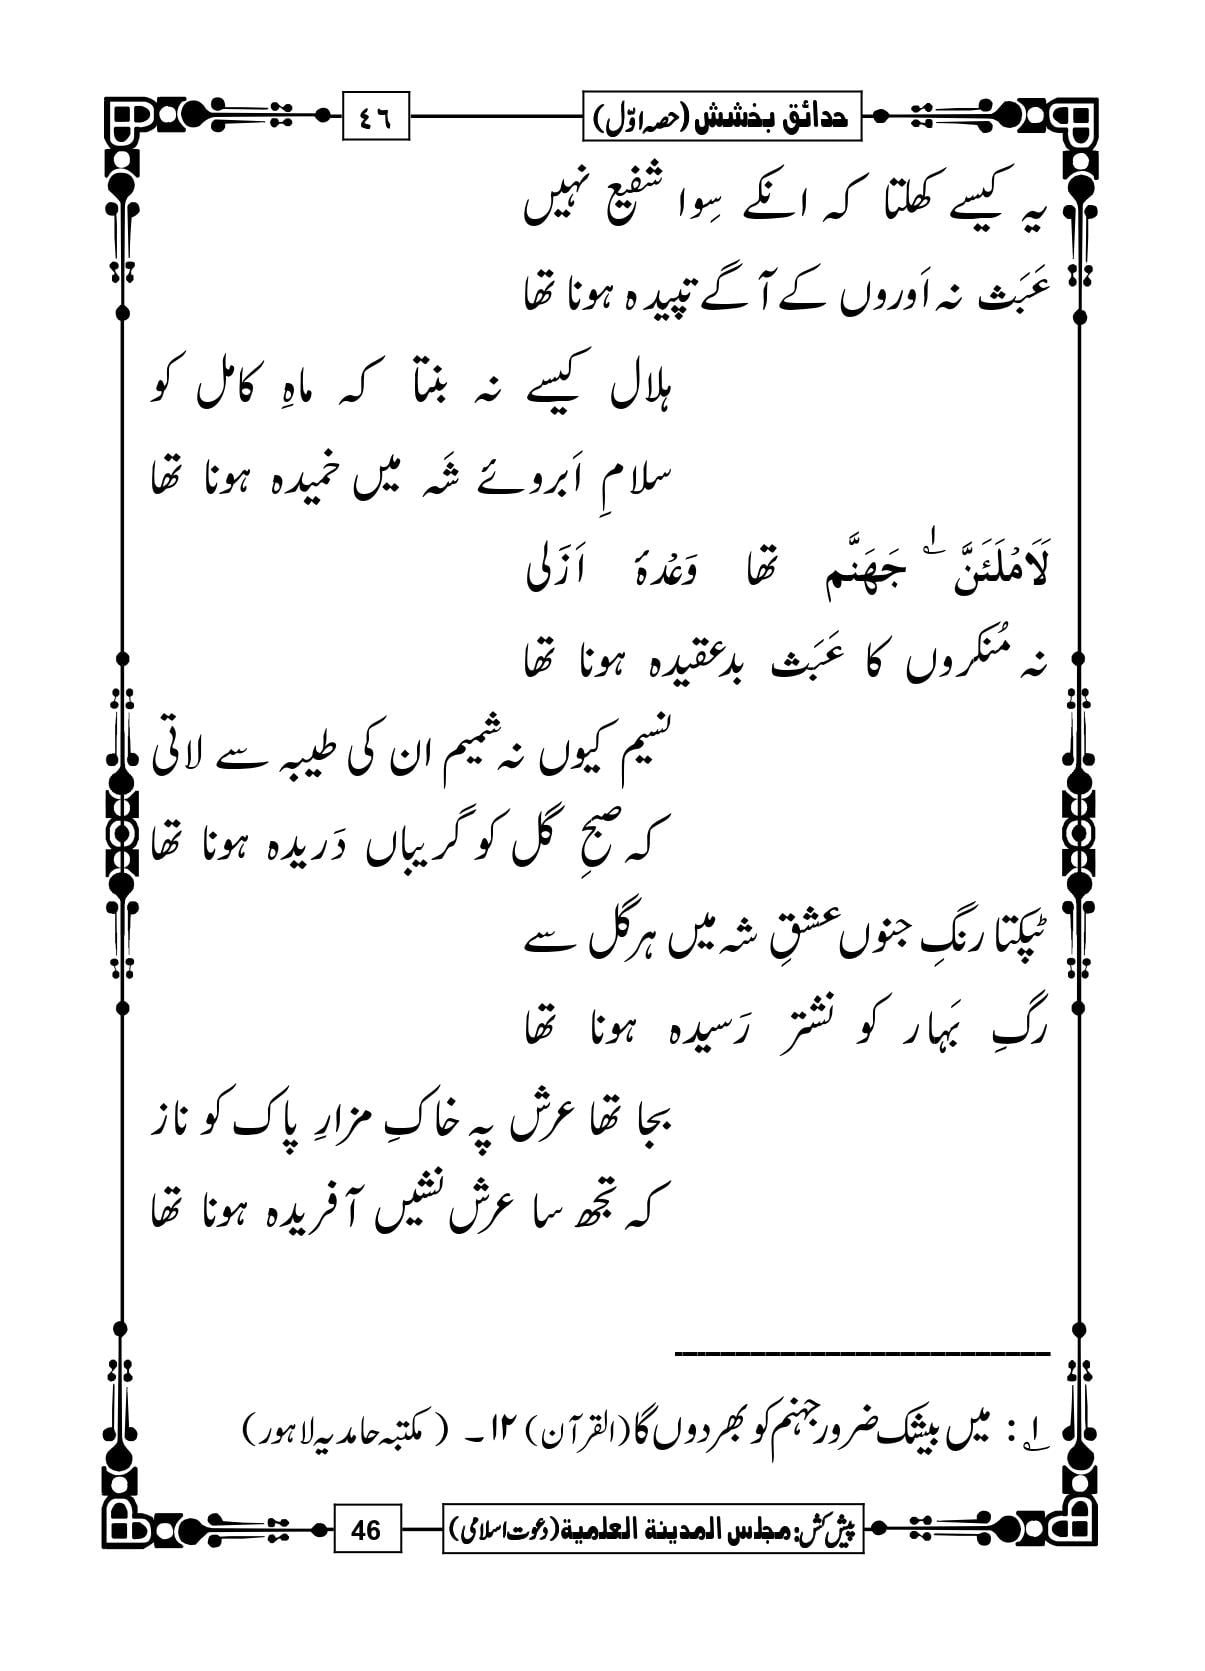 حدائق بخشش (حصہ اوّل)
٤٦
یہ کیسے کھلتا کہ انکے سِوا شفیع نہیں
عَبَث نہ اَوروں کے آگے تپیدہ ہونا تھا
ہلال کیسے نہ بنتا کہ ماہِ کامل کو
سلامِ اَبروئے شَہ میں خمیدہ ہونا تھا
لَاَمْلَئَنَّ ۱؎ جَهَنَّم تھا وَعْدۂ اَزَلی
نہ مُنکروں کا عَبَث بدعقیدہ ہونا تھا
نسیم کیوں نہ شمیم ان کی طیبہ سے لاتی
کہ صبحِ گل کو گریباں دَریدہ ہونا تھا
ٹپکتا رنگِ جنوں عشقِ شہ میں ہر گل سے
رگِ بَہار کو نشتر رَسیدہ ہونا تھا
بجا تھا عرش پہ خاکِ مزارِ پاک کو ناز
کہ تجھ سا عرش نشیں آفریدہ ہونا تھا
۱؎ : میں بیشک ضرور جہنم کو بھر دوں گا (القرآن) ۱۲۔ ( مکتبہ حامدیہ لاہور)
پیش کش: مجلس المدینة العلمیة (دعوت اسلامی)
46